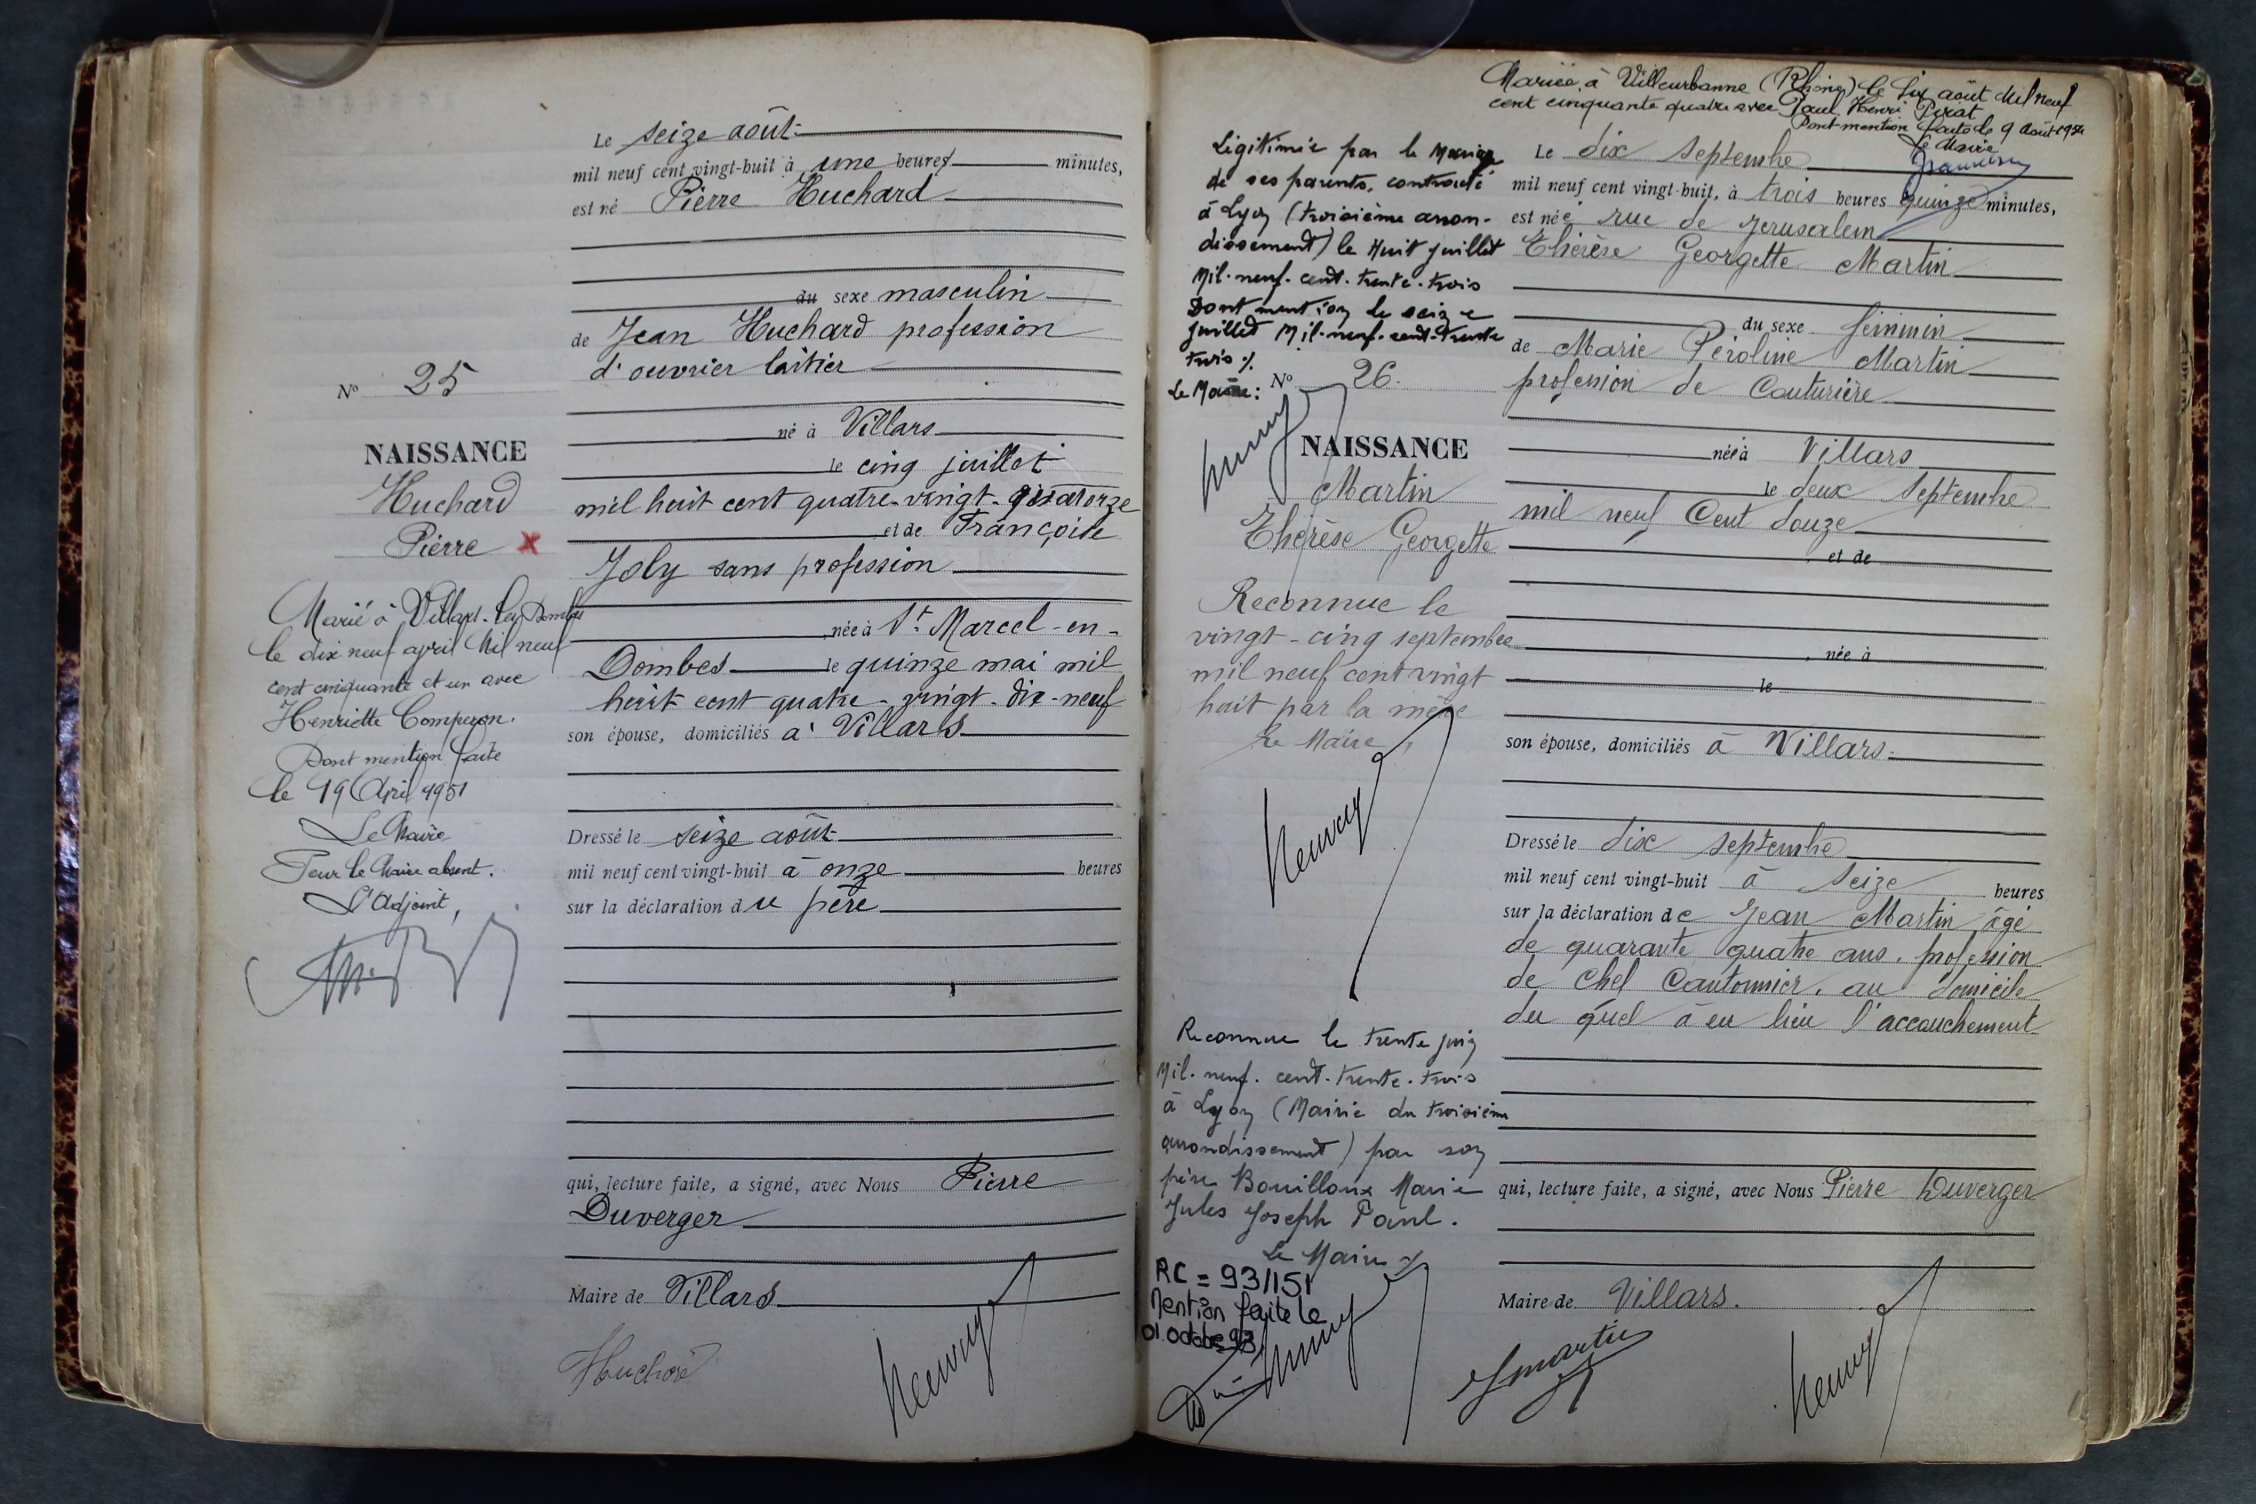 Le seize août
mil neuf cent vingt-huit à une heures minutes,
est né Pierre Huchard
du sexe masculin
de Jean Huchard profession
d'ouvrier laitier
né à Villars
le cinq juillet
mil huit cent quatre-vingt-quatorze
et de Françoise
Joly sans profession
née à St Marcel-en-
Dombes le quinze mai mil
huit cent quatre-vingt-dix-neuf
son épouse, domiciliés à Villars
Dressé le seize août
mil neuf cent vingt-huit à onze heures
sur la déclaration du père
qui, lecture faite, a signé, avec Nous Pierre
Duverger
Maire de Villars
Huchard
No 25
NAISSANCE
Huchard
Pierre X
Marié à Villars-les-Dombes
le dix neuf avril Mil neuf
cent cinquante et un avec
Henriette
Dont mention faite
le 19 Avril 1951
Le Maire
Pour le Maire absent.
L'Adjoint,
Mariée à Villeurbanne (Rhône) le six août Mil neuf
cent cinquante quatre avec Paul Henri Perat
Dont mention faite le 9 août 1954
Le Maire
Légitimée par le Mariage
de ses parents, contracté
à Lyon (troisième arron-
dissement) le Huit juillet
Mil-neuf-cent-trente-trois
Dont mention le seize
juillet Mil-neuf-cent-trente
trois ./.
Le Maire :
No 26.
NAISSANCE
Martin
Thérèse Georgette
Reconnue le
vingt-cinq septembre
mil neuf cent vingt
huit par la mère
Le Maire,
Reconnue le trente juin
Mil-neuf-cent-trente-trois
à Lyon (Mairie du troisième
arrondissement) par son
père Bouilloux Marie
Jules Joseph Paul.
Le Maire ./.
RC = 93/151
Mention faite le
01 octobre 93
Le dix septembre
mil neuf cent vingt-huit, à trois heures quinze minutes,
est née rue de Jerusalem
Thérèse Georgette Martin
du sexe féminin
de Marie Péroline Martin
profession de Couturière
née à Villars
le deux septembre
mil neuf Cent douze
et de
née à
le
son épouse, domiciliés à Villars
Dressé le dix septembre
mil neuf cent vingt-huit à seize heures
sur la déclaration de Jean Martin âgé
de quarante quatre ans, profession
de Chef Cantonnier, au domicile
du quel à eu lieu l'accouchement
qui, lecture faite, a signé, avec Nous Pierre Duverger
Maire de Villars.
JMartin